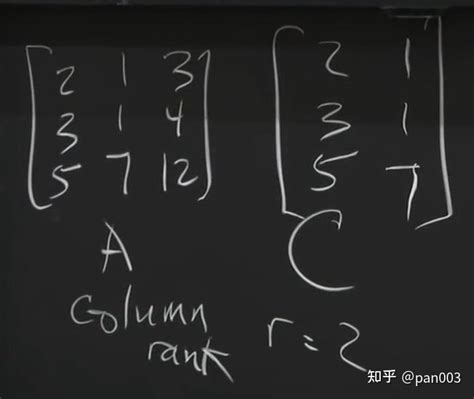 2 1 3
3 1 4
5 7 12
A
2 1
3 1
5 7
C
column
rank
r = 2
知乎 @pan003